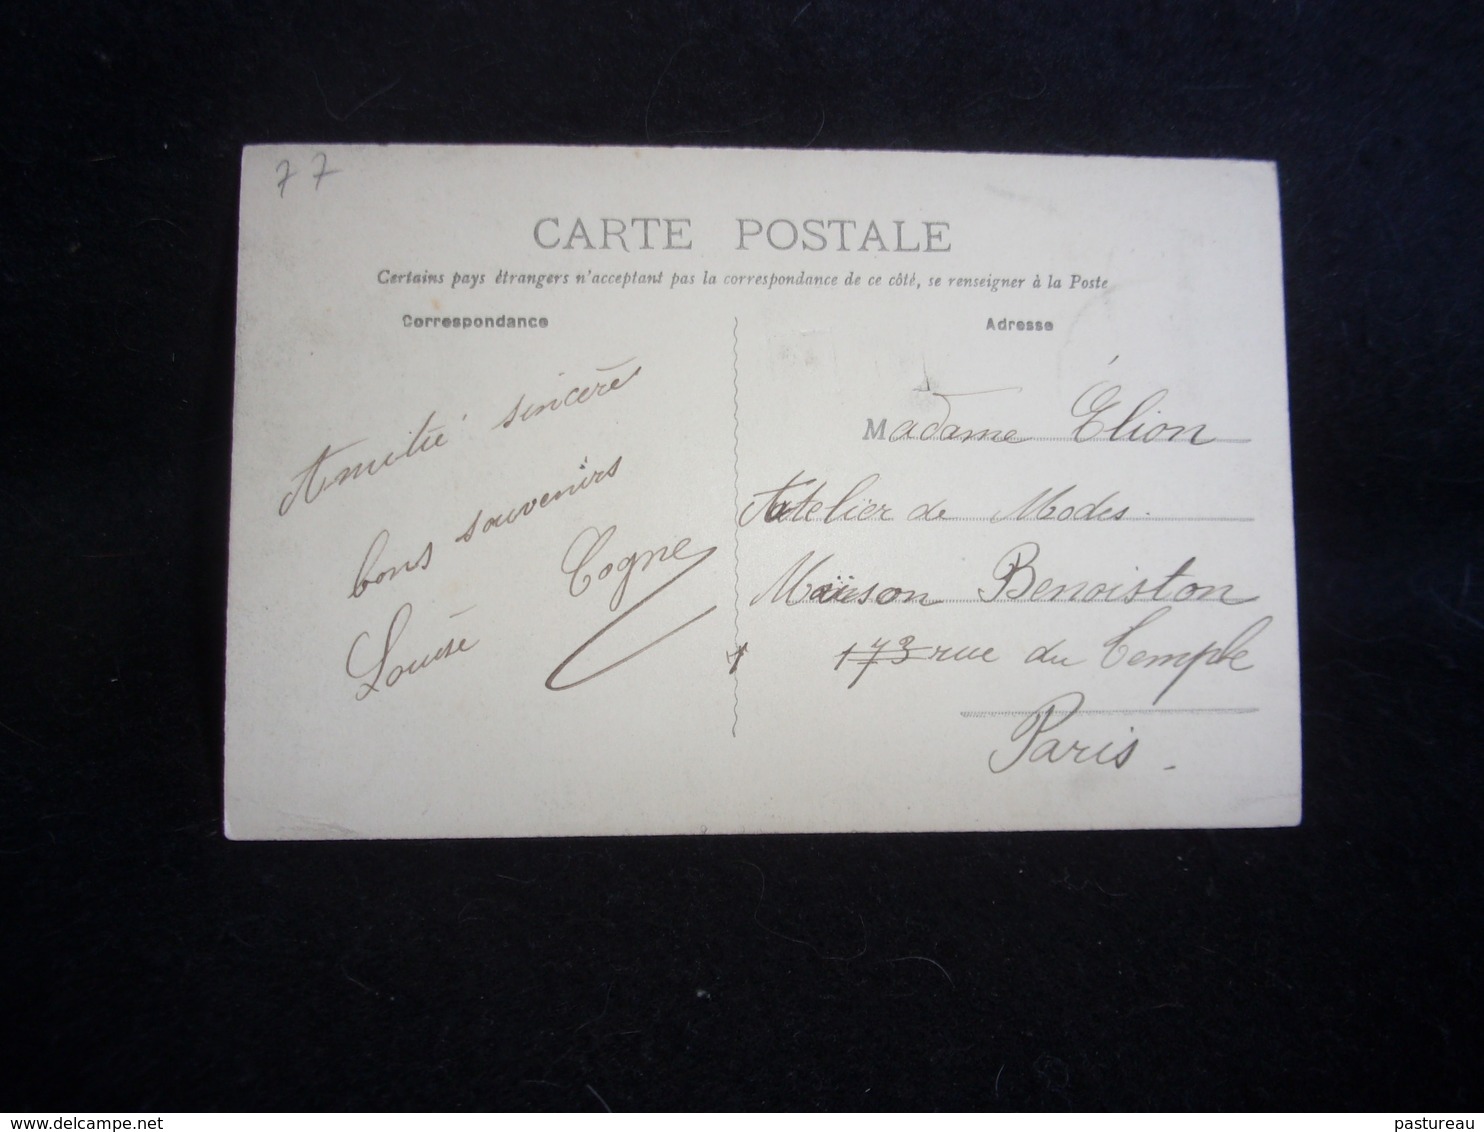 77
CARTE POSTALE
Certains pays étrangers n'acceptant pas la correspondance de ce côté, se renseigner à la Poste
Correspondance
Adresse
Amitié sincère
bons souvenirs
Louise Cogne
Madame Élion
Atelier de Modes.
Maison Benoiston
173 rue du Temple
Paris.
www.delcampe.net
pastureau